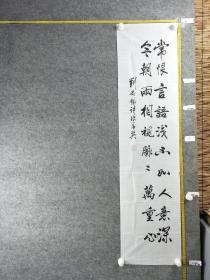 常恨言語淺不如人意深
今朝兩相視脈々萬重心
劉禹錫詩